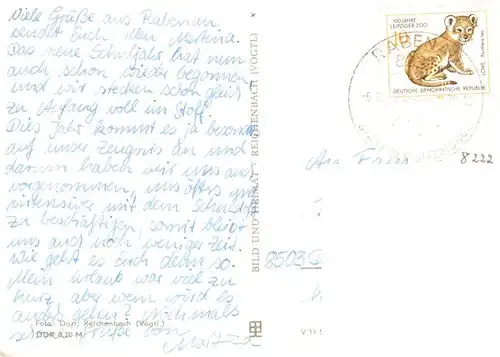 Viele Grüße aus Rabenau
sendet Euch allen Martina.
Das neue Schuljahr hat nun
auch schon wieder begonnen
und wir stecken schon gleich
zu Anfang voll im Stoff.
Dies Jahr kommt es ja besonders
auf unser Zeugnis an und
darum haben wir uns auch
vorgenommen, uns öfters und
intensiver mit dem Schulstoff
zu beschäftigen, somit bleibt
uns auch noch weniger Zeit.
Wie geht es Euch denn so.
Mein Urlaub war viel zu
kurz, aber wem wird es
anders gehen? Nochmals
schöne Grüße von
Foto: Darr, Reichenbach (Vogtl.)
DDR 0,20 M
BILD UND HEIMAT REICHENBACH (VOGTL)
100 JAHRE
LEIPZIGER ZOO
10
LÖWE, Panthera leo
DEUTSCHE DEMOKRATISCHE REPUBLIK
RABEN
8222
An
8503